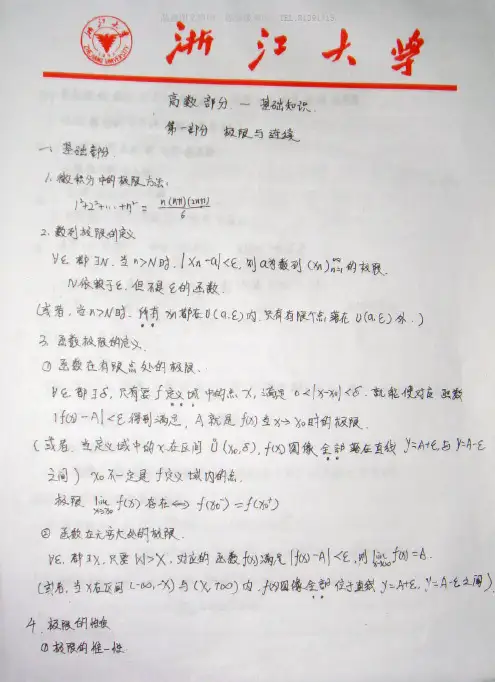 浙江大学
ZHEJIANG UNIVERSITY
高数部分 — 基础知识.
第一部分 极限与连续
一、基础部分.
1. 微积分中的极限方法:
1²+2²+...+n² = n(n+1)(2n+1)/6
2. 数列极限的定义
∀ε 都∃N. 当n>N时. |Xn-a|<ε, 则a为数列(Xn)ₙ₌₁^∞的极限.
N依赖于ε. 但不是ε的函数.
(或者. 当n>N时. 所有Xn都在U(a,ε)内. 只有有限个点落在U(a,ε)外.)
3. 函数极限的定义.
① 函数在有限点处的极限.
∀ε 都∃δ. 只有要f定义域中的点X, 满足 0<|x-x₀|<δ. 就能使对应函数
|f(x)-A|<ε得到满足, A就是f(x)当x→x₀时的极限.
(或者. 当定义域中的x.在区间Ů(x₀,δ), f(x)图像全部落在直线 y=A+ε与y=A-ε
之间) x₀不一定是f定义域内的点.
极限 lim x→x₀ f(x) 存在 ⟺ f(x₀⁻)=f(x₀⁺)
② 函数在无穷大处的极限.
∀ε, 都∃X, 只要|x|>X, 对应的函数f(x)满足|f(x)-A|<ε, 则 lim x→∞ f(x)=A.
(或者, 当x在区间(-∞,-X)与(X,+∞)内. f(x)图像全部位于直线y=A+ε, y=A-ε之间)
4. 极限的性质
① 极限的惟一性